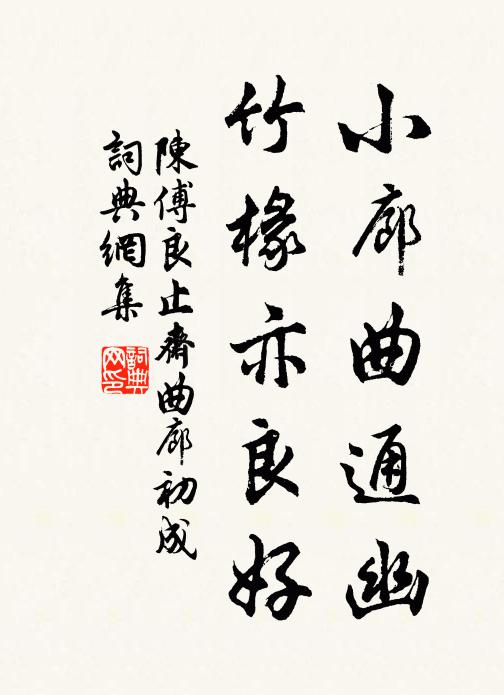 小廊曲通幽
竹椽亦良好
陳傅良止齋曲廊初成
詞典網集
詞典網印